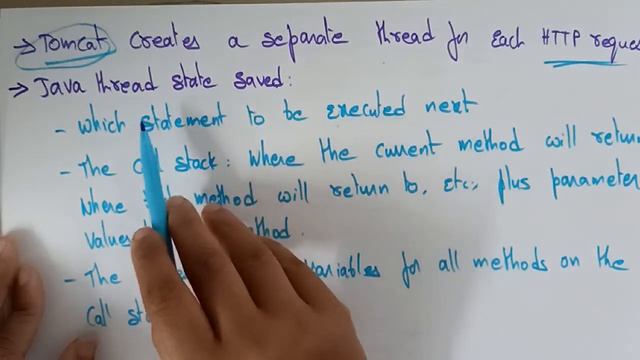 → Tomcat creates a separate thread for each HTTP reques
→ Java thread state saved:
- which statement to be executed next
- The stack: where the current method will return
where method will return to, etc, plus parameter
values
- The variables for all methods on the
call